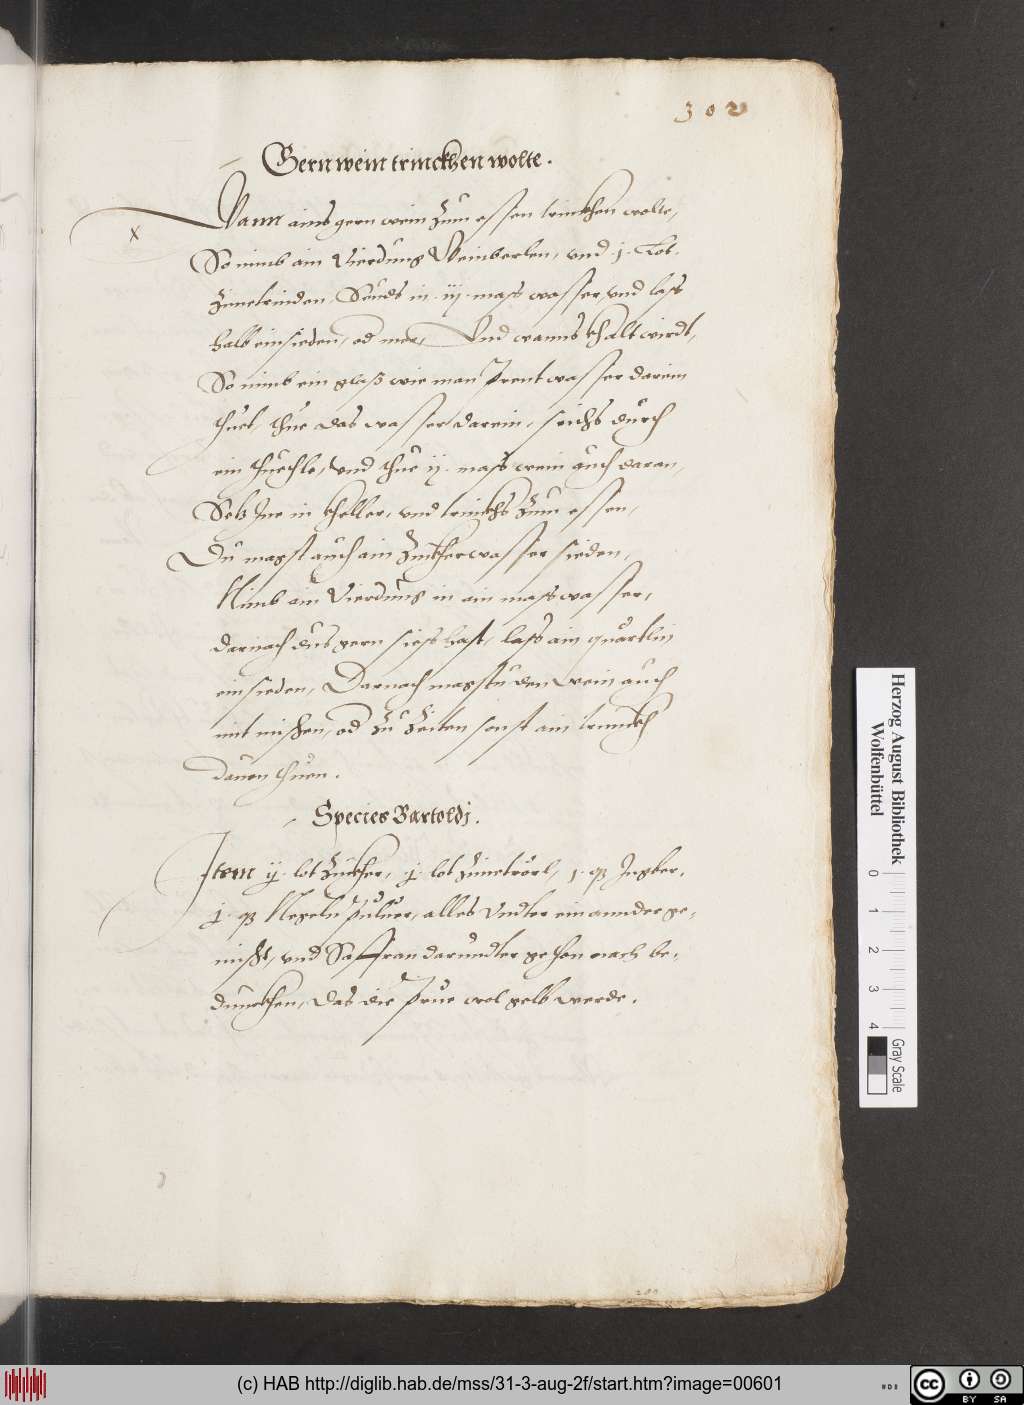 302
Gern wein trinckhen wolte.
Wann ains gern wein zum essen trinckhen wolte,
x
So nimb ain Vierdung Weinberlen, vnd .j. Lot.
Zimetrinden, Seuds in .iij. mass wasser, vnd lass
halb einsieden, od mer, Vnd wanns khalt wirdt,
So nimb ein glaß wie man Prentwasser darein
thuet, thue das wasser darein, seichs durch
ein thuechle, vnd thue ij. mass wein auch daran,
Setz Ine in kheller, vnd trinckhs zum essen,
Du magst auch ain Zuckherwasser sieden,
Nimb ain Vierdung in ain mass wasser,
darnach dus gern siess hast, lass ain quartlin
einsieden, Darnach magstu den Wein auch
mit mischen, od zu Zeiten sonst ain trunckh
dauon thuen.
Species Bartoldj.
Item ij. lot Zuckher, j. lot Zimetrörl, 1. q Ingber,
j. q Negeln Puluer, alles Vndter einannder ge-
mischt, vnd Saffran darundter gethon nach be-
dunckhen, das die Prue wol gelb werde.
Herzog August Bibliothek
Wolfenbüttel
0 1 2 3 4
Gray Scale
(c) HAB http://diglib.hab.de/mss/31-3-aug-2f/start.htm?image=00601
cc BY SA